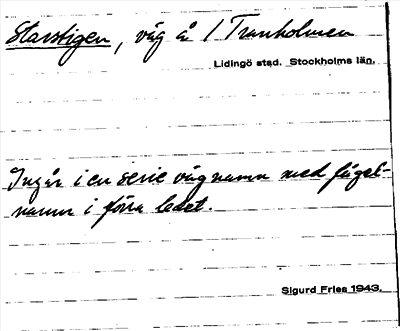 Starstigen, väg å / Tranholmen
Lidingö stad. Stockholms län.
Ingår i en serie vägnamn med fågel-
namn i förra ledet.
Sigurd Fries 1943.